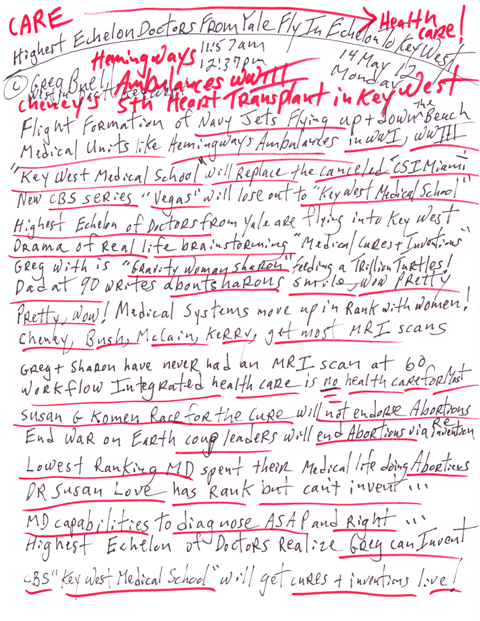 CARE Health care!
Highest Echelon Doctors From Yale Fly In Echelon to Key West
Hemingways 11:57am 14 May 12
12:37pm Monday
© Greg Buell Ambulances WWIII
Cheney's 5th Heart Transplant in Key West
Flight Formation of Navy Jets Flying up + down the Beach
Medical Units like Hemingways Ambulances in WWI, WWIII
"Key West Medical School" will Replace the canceled "CSI Miami"
New CBS series "Vegas" will lose out to "Key West Medical School"
Highest Echelon of Doctors from Yale are flying into Key West
Drama of Real life brainstorming "Medical Cures + Inventions"
Greg with is "Gravity Woman Sharon" feeding a Trillion Turtles!
Dad at 90 writes about Sharons smile, wow Pretty
Pretty, wow! Medical Systems move up in Rank with women!
Cheney, Bush, McLain, Kerry, get most MRI scans
Greg + Sharon have never had an MRI scan at 60
Workflow Integrated health care is no health care for Most
Susan G Komen Race for the Cure will not endorse Abortions
End War on Earth coup leaders will end Abortions via Reinvention
Lowest Ranking MD spent their Medical life doing Abortions
DR Susan Love has Rank but can't invent ...
MD capabilities to diagnose ASAP and Right ...
Highest Echelon of Doctors Realize Greg can Invent
CBS "Key West Medical School" will get cures + inventions live!